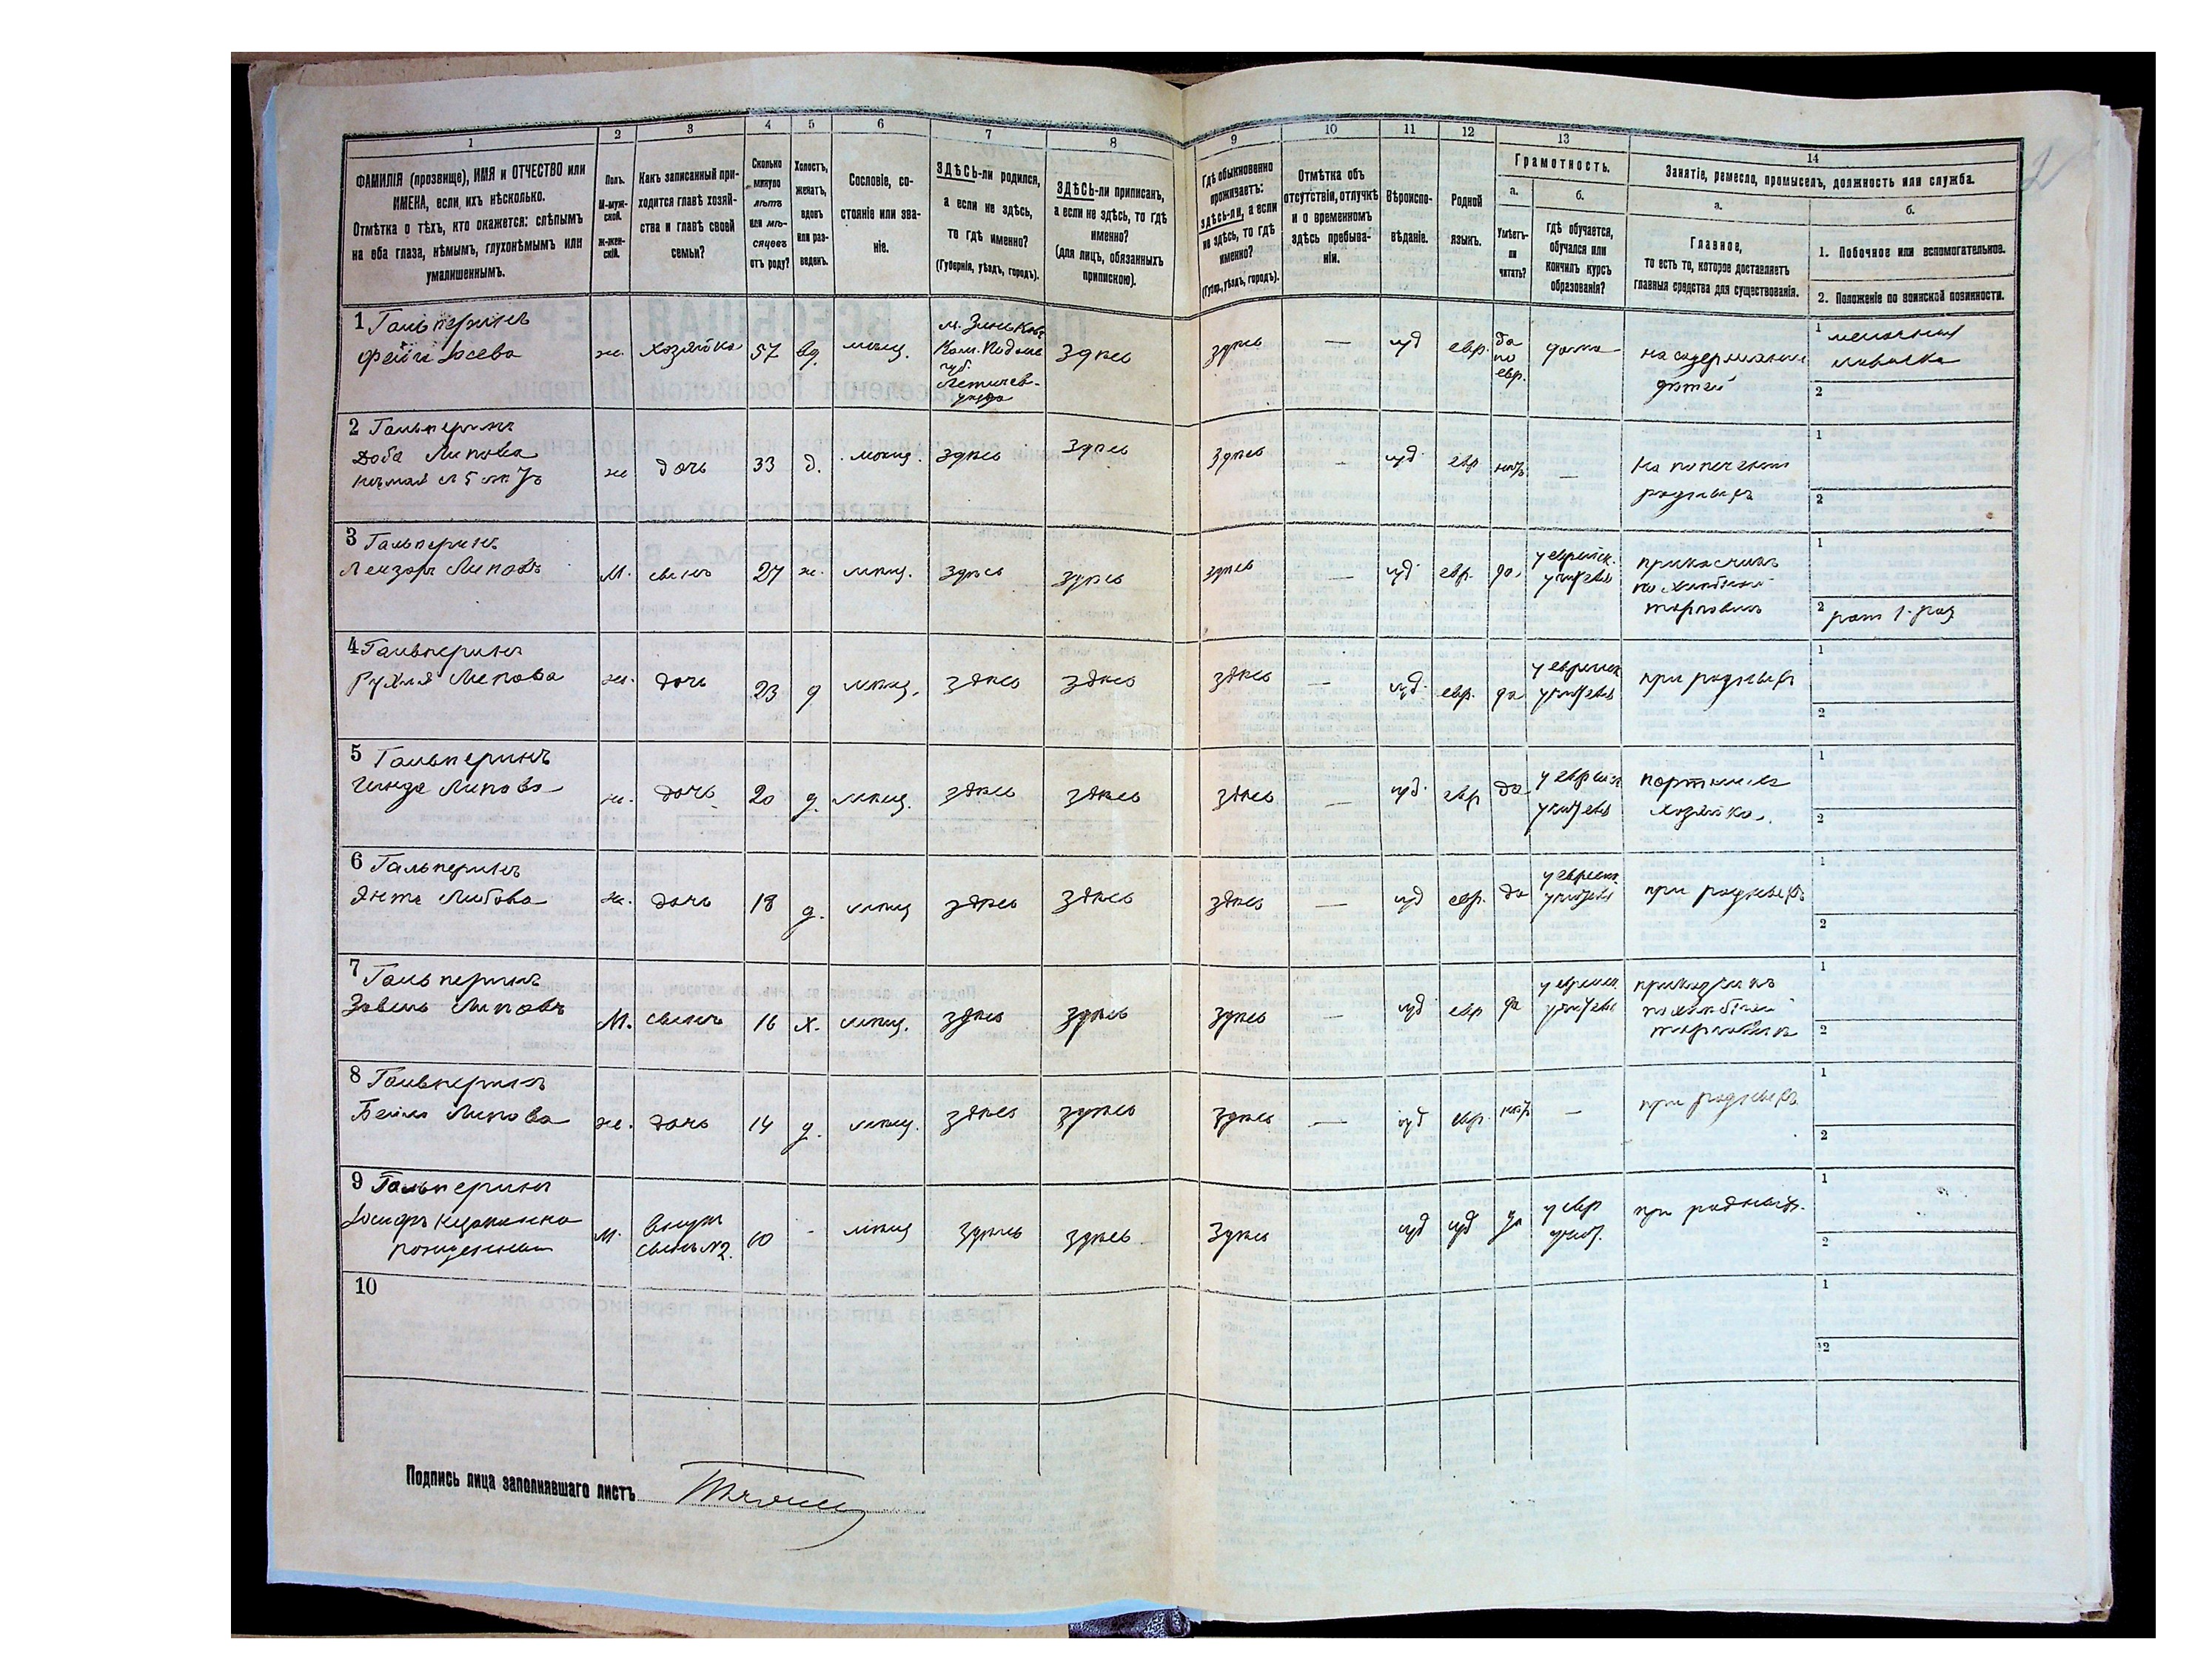 1 2 3 4 5 6 7 8 9 10 11 12 13 14
ФАМИЛІЯ (прозвище), ИМЯ и ОТЧЕСТВО или
ИМЕНА, если ихъ нѣсколько.
Отмѣтка о тѣхъ, кто окажется: слѣпымъ
на оба глаза, нѣмымъ, глухонѣмымъ или
умалишеннымъ.
Полъ.
М-муж-
ской.
Ж-жен-
скій.
Какъ записанный при-
ходится главѣ хозяй-
ства и главѣ своей
семьи?
Сколько
минуло
лѣтъ
или мѣ-
сяцевъ
отъ роду?
Холостъ,
женатъ,
вдовъ
или раз-
веденъ.
Сословіе, со-
стояніе или зва-
ніе.
ЗДѢСЬ-ли родился,
а если не здѣсь,
то гдѣ именно?
(Губернія, уѣздъ, городъ).
ЗДѢСЬ-ли приписанъ,
а если не здѣсь, то гдѣ
именно?
(для лицъ, обязанныхъ
припискою).
Гдѣ обыкновенно
проживаетъ:
здѣсь-ли, а если
не здѣсь, то гдѣ
именно?
(Губер., уѣздъ, городъ).
Отмѣтка объ
отсутствіи, отлучкѣ
и о временномъ
здѣсь пребыва-
ніи.
Вѣроиспо-
вѣданіе.
Родной
языкъ.
Грамотность.
а.
Умѣетъ-
ли
читать?
б.
Гдѣ обучается,
обучался или
кончилъ курсъ
образованія?
Занятіе, ремесло, промыселъ, должность или служба.
а.
Главное,
то есть то, которое доставляетъ
главныя средства для существованія.
б.
1. Побочное или вспомогательное.
2. Положеніе по воинской повинности.
1 Гальперинъ
Фейга Іосева
ж. хозяйка 57 вд. мѣщ.
м. Зиньковъ
Кам. Подольс
губ.
Летичев-
уѣзда
здѣсь здѣсь — іуд евр.
да
по
евр.
дома
на содержаніи
дѣтей
1 мелочная
лавочка
2
2 Гальперинъ
Доба Липова
ж дочь 33 д. мѣщ. здѣсь здѣсь здѣсь — іуд евр нѣтъ —
На попеченіи
родныхъ
1
2
3 Гальперинъ
Лейзоръ Липовъ
М. сынъ 27 ж. мѣщ. здѣсь здѣсь здѣсь — іуд евр. да,
у еврейск.
учителя
прикащикъ
по хлѣбной
торговлѣ
1
2 рат 1. раз
4 Гальперинъ
Рухля Липова
ж. дочь 23 д мѣщ. здѣсь здѣсь здѣсь — іуд. евр. да
у еврейск
учителя
при родныхъ
1
2
5 Гальперинъ
Гинда Липова
ж. дочь 20 д. мѣщ. здѣсь здѣсь здѣсь — іуд. евр да
у еврейск
учителя
портниха
хозяйка.
1
2
6 Гальперинъ
Энта Либова
ж. дочь 18 д. мѣщ здѣсь здѣсь здѣсь — іуд евр. да
у еврейск
учителя
при родныхъ
1
2
7 Гальперинъ
Завель Липовъ
М. сынъ 16 х. мѣщ. здѣсь здѣсь здѣсь — іуд евр да
у еврейск
учителя
прикащикъ
по хлѣбной
торговлѣ
1
2
8 Гальперинъ
Бейла Липова
ж. дочь 14 д. мѣщ. здѣсь здѣсь здѣсь — іуд евр. нѣтъ —
при родныхъ
1
2
9 Гальперинъ
Іосифъ
М.
Внукъ
сынъ №2.
10 - мѣщ здѣсь здѣсь. Здѣсь іуд іуд да
у евр
учит.
при родныхъ.
1
2
10
1
2
Подпись лица заполнявшаго листъ